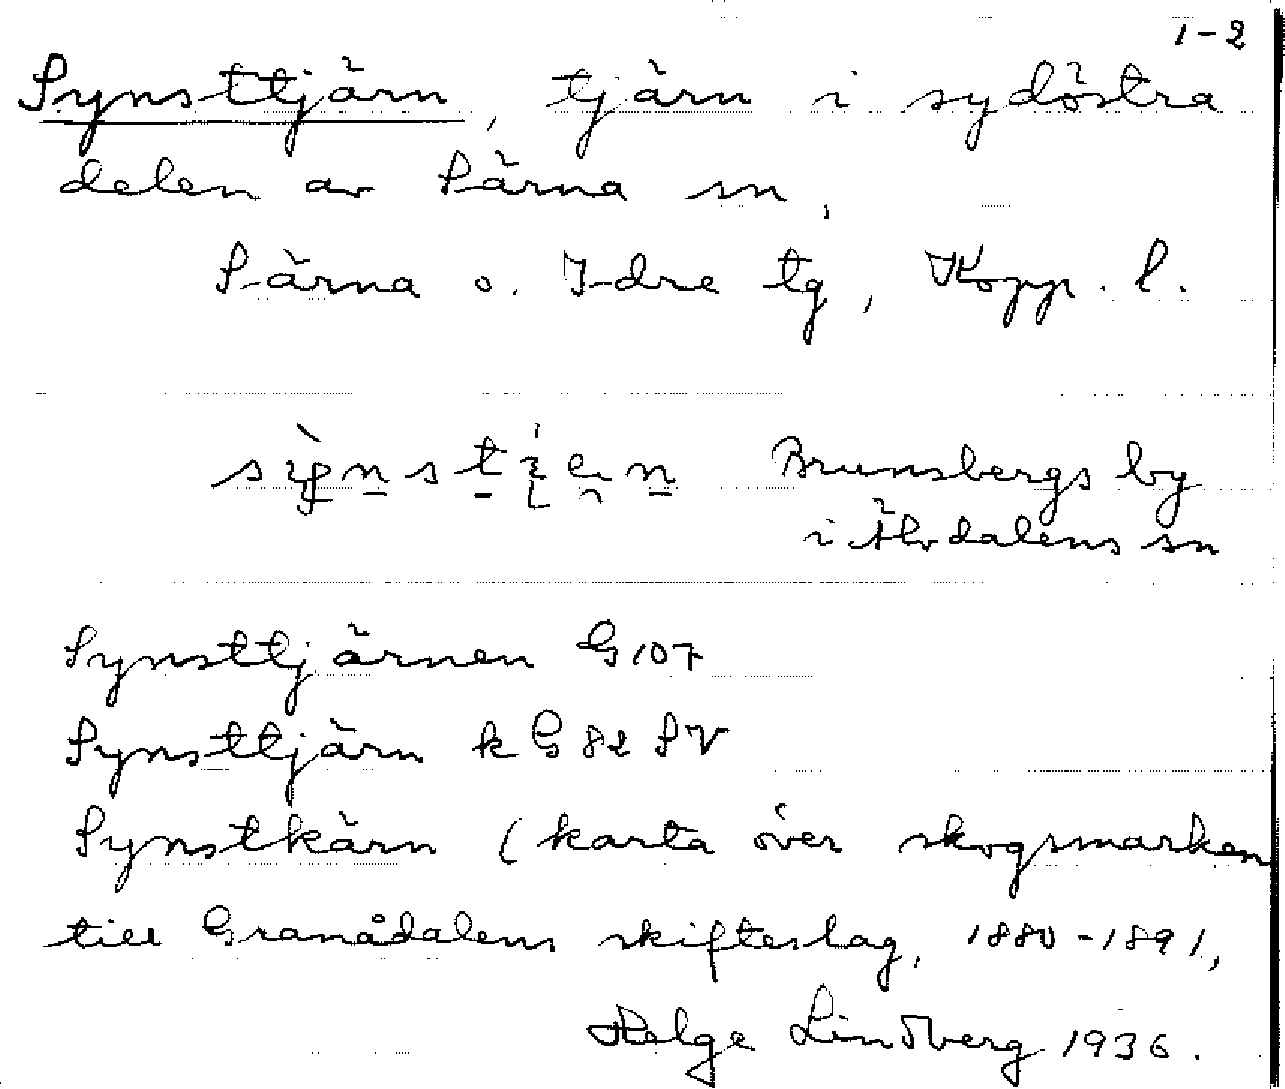 1-2
Synsttjärn, tjärn i sydöstra
delen av Särna sn,
Särna o. Idre tg, Kopp. l.
Brunsbergs by
i Älvdalens sn
Synsttjärnen G 107
Synsttjärn k G 82 SV
Synstkärn (karta över skogsmarken
till Granådalens skifteslag, 1880-1891,
Helge Lindberg 1936.